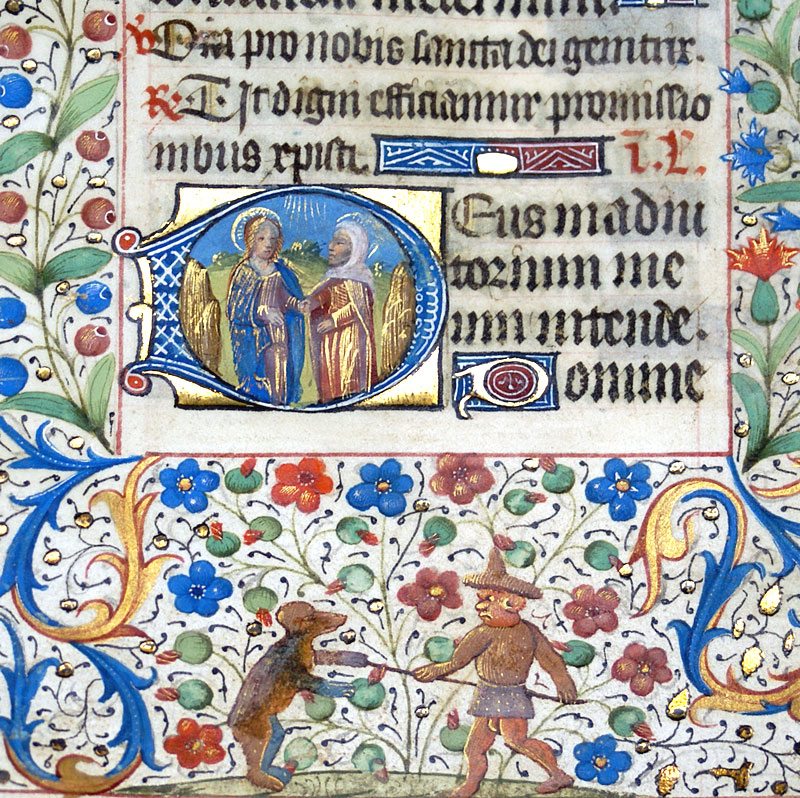 V Ora pro nobis sancta dei genitrix.
R Ut digni efficiamur promissio
nibus xpisti. I. L.
Deus in adiu
torium me
um intende.
Domine